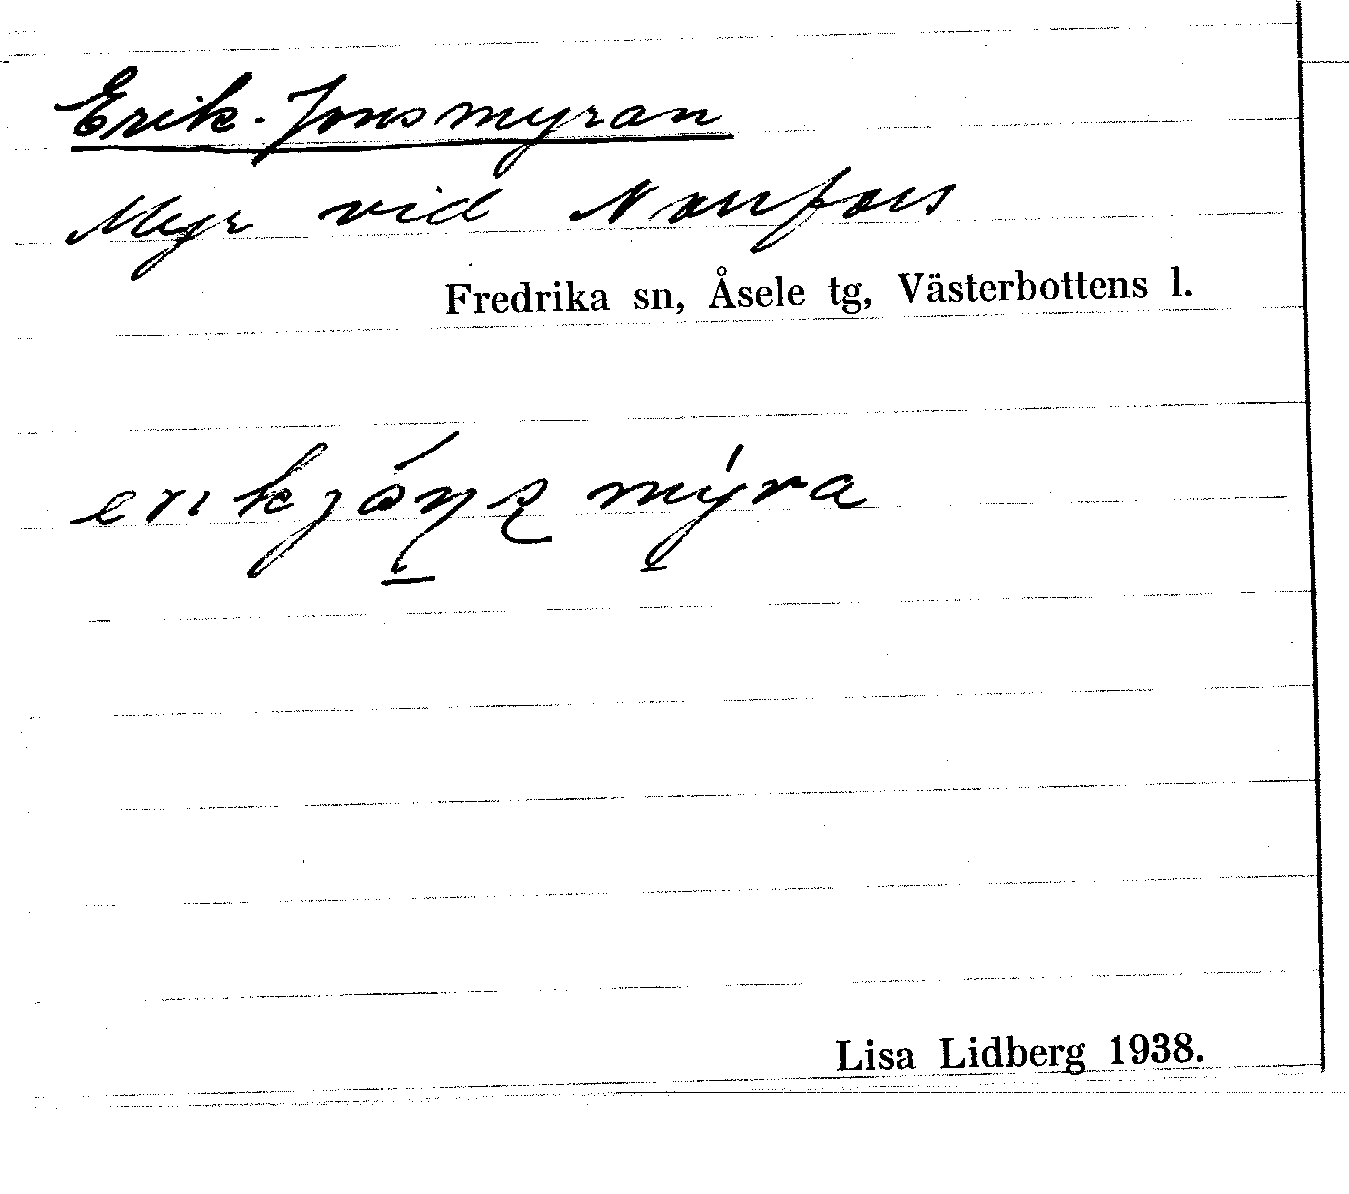 Erik-Jonsmyran
Myr vid Norrfors
Fredrika sn, Åsele tg, Västerbottens l.
erikjóns mýra
Lisa Lidberg 1938.